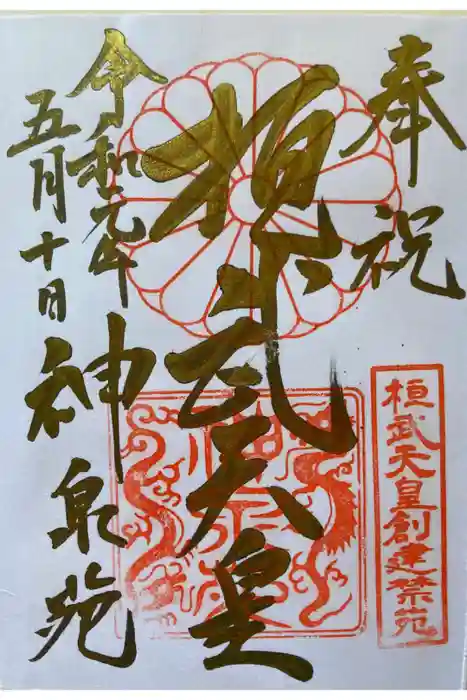 奉祝
桓武天皇創建禁苑
桓武天皇
令和元年
五月十日
神泉苑